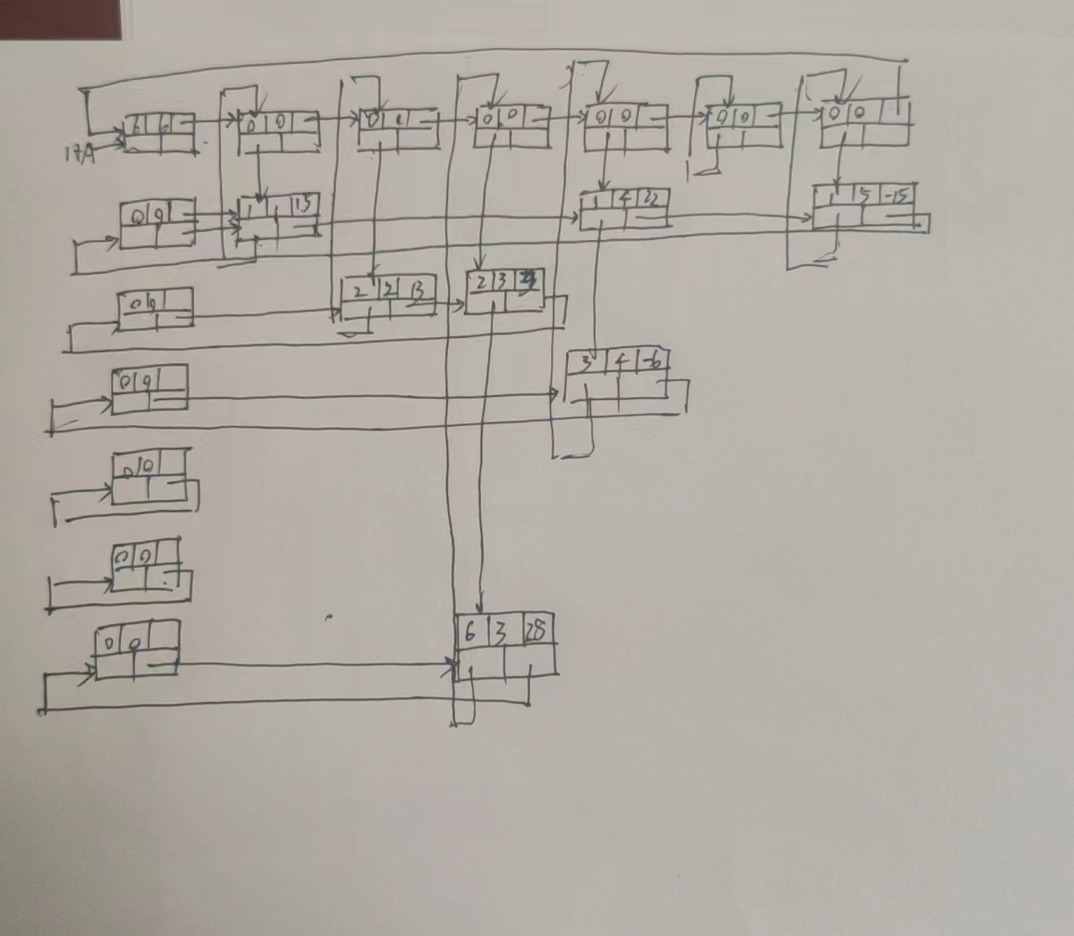 6 6 0 0 0 0 0 0 0 0 0 0 0
HA
0 0 1 1 15 1 4 22 1 5 -15
0 0 2 2 13 2 3
0 0 3 4 -6
0 0
0 0
0 0 6 3 28